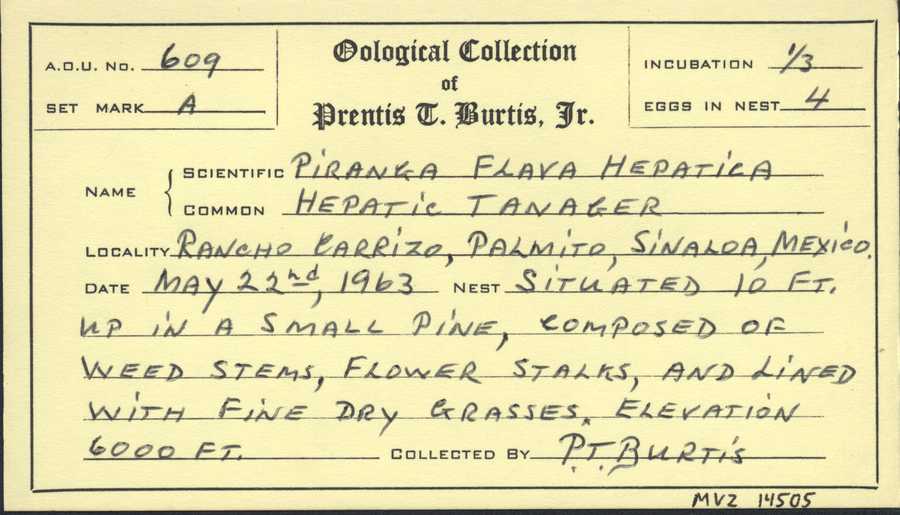 A.O.U. No. 609
SET MARK A
Oological Collection
of
Prentis T. Burtis, Jr.
INCUBATION 1/3
EGGS IN NEST 4
NAME { SCIENTIFIC PIRANGA FLAVA HEPATICA
COMMON HEPATIC TANAGER
LOCALITY RANCHO CARRIZO, PALMITO, SINALOA, MEXICO.
DATE MAY 22nd, 1963 NEST SITUATED 10 FT.
UP IN A SMALL PINE, COMPOSED OF
WEED STEMS, FLOWER STALKS, AND LINED
WITH FINE DRY GRASSES. ELEVATION
6000 FT. COLLECTED BY P.T. BURTIS
MVZ 14505